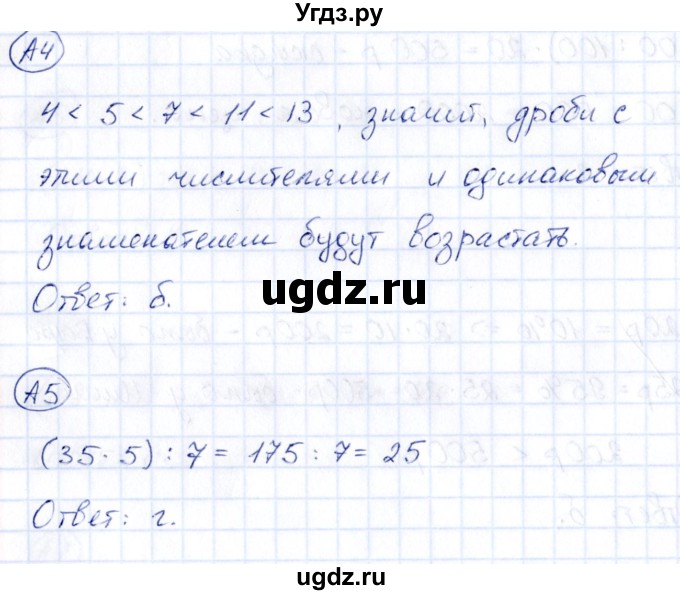 Угдз.ру
А4
4 < 5 < 7 < 11 < 13, значит, дроби с
этими числителями и одинаковым
знаменателем будут возрастать.
Ответ: б.
ugdz.ru
А5
(35 · 5) : 7 = 175 : 7 = 25
Ответ: г.
ugdz.ru
ugdz.ru